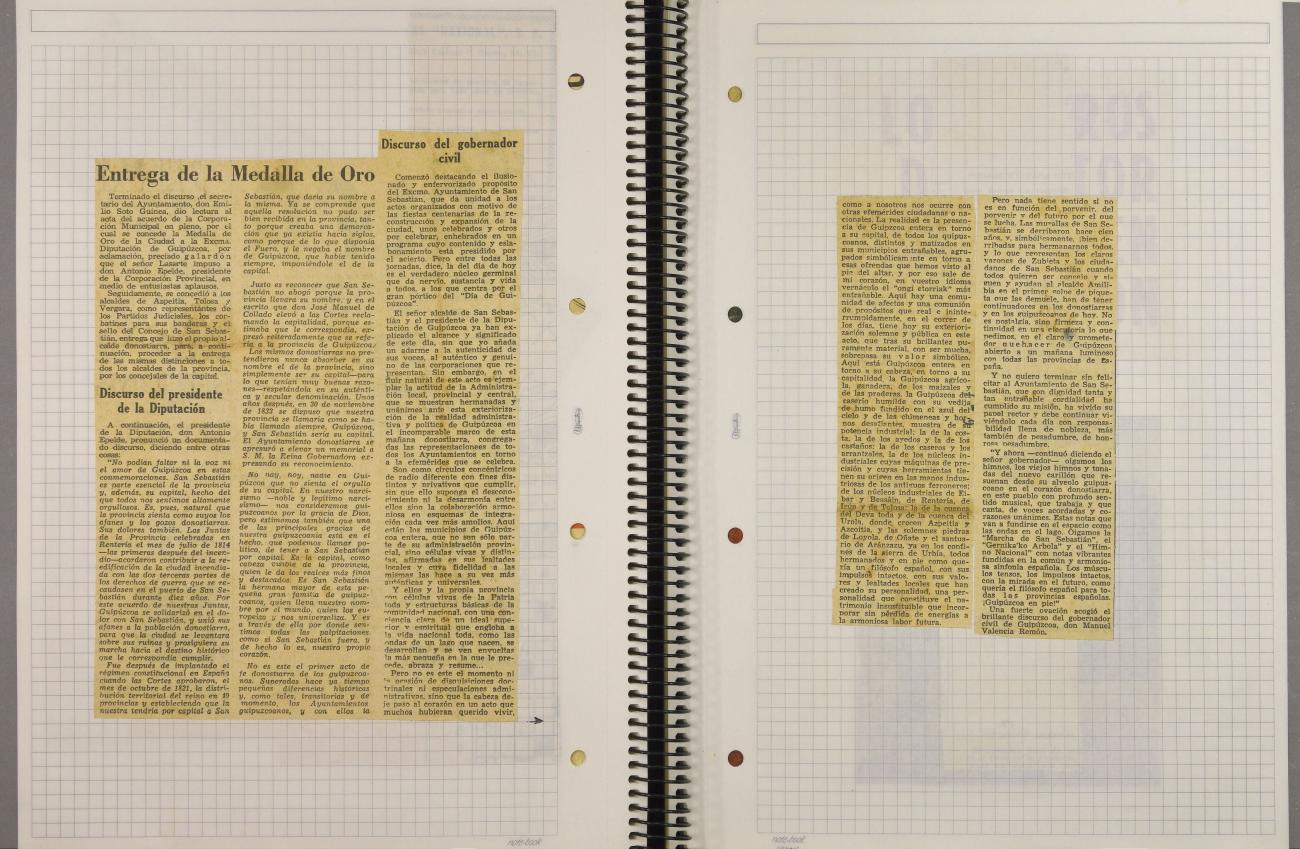 Entrega de la Medalla de Oro
Terminado el discurso, el secre-
tario del Ayuntamiento, don Emi-
lio Soto Guinea, dio lectura al
acta del acuerdo de la Corpora-
ción Municipal en pleno, por el
cual se concede la Medalla de
Oro de la Ciudad a la Excma.
Diputación de Guipúzcoa, por
aclamación, preciado galardón
que el señor Lasarte impuso a
don Antonio Epelde, presidente
de la Corporación Provincial, en
medio de entusiastas aplausos.
Seguidamente, se concedió a los
alcaldes de Azpeitia, Tolosa y
Vergara, como representantes de
los Partidos Judiciales, los cor-
batines para sus banderas y el
sello del Concejo de San Sebas-
tián, entrega que hizo el propio al-
calde donostiarra, para, a conti-
nuación, proceder a la entrega
de las mismas distinciones a to-
dos los alcaldes de la provincia,
por los concejales de la capital.
Discurso del presidente
de la Diputación
A continuación, el presidente
de la Diputación, don Antonio
Epelde, pronunció un documenta-
do discurso, diciendo entre otras
cosas:
"No podían faltar ni la voz ni
el amor de Guipúzcoa en estas
conmemoraciones. San Sebastián
es parte esencial de la provincia
y, además, su capital, hecho del
que todos nos sentimos altamente
orgullosos. Es, pues, natural que
la provincia sienta como suyos los
afanes y los gozos donostiarras.
Sus dolores también. Las Juntas
de la Provincia celebradas en
Rentería el mes de julio de 1814
—las primeras después del incen-
dio—acordaron contribuir a la re-
edificación de la ciudad incendia-
da con las dos terceras partes de
los derechos de guerra que se re-
caudasen en el puerto de San Se-
bastián durante diez años. Por
este acuerdo de nuestras Juntas,
Guipúzcoa se solidarizó en el do-
lor con San Sebastián, y unió sus
afanes a la población donostiarra,
para que la ciudad se levantara
sobre sus ruinas y prosiguiera su
marcha hacia el destino histórico
que le correspondía cumplir.
Fue después de implantado el
régimen constitucional en España
cuando las Cortes aprobaron, el
mes de octubre de 1821, la distri-
bución territorial del reino en
provincias y estableciendo que la
nuestra tendría por capital a San
Sebastián, que daría su nombre a
la misma. Ya se comprende que
aquella resolución no pudo ser
bien recibida en la provincia, tan-
to porque creaba una demarca-
ción que ya existía hacía siglos,
como porque de lo que disponía
el Fuero, y le negaba el nombre
de Guipúzcoa, que había tenido
siempre, imponiéndole el de la
capital.
Justo es reconocer que San Se-
bastián no abogó porque la pro-
vincia llevara su nombre, y en el
escrito que don José Manuel de
Collado elevó a las Cortes recla-
mando la capitalidad, porque es-
timaba que le correspondía, ex-
presó reiteradamente que se refe-
ría a la provincia de Guipúzcoa.
Los mismos donostiarras no pre-
tendieron nunca absorber en su
nombre el de la provincia, sino
simplemente ser su capital—para
lo que tenían muy buenas razo-
nes—respetándola en su auténti-
ca y secular denominación. Unos
años después, en 30 de noviembre
de 1833 se dispuso que nuestra
provincia se llamaría como se ha-
bía llamado siempre, Guipúzcoa,
y San Sebastián sería su capital.
El Ayuntamiento donostiarra se
apresuró a elevar un memorial a
S. M. la Reina Gobernadora ex-
presando su reconocimiento.
No hay, hoy, nadie en Gui-
púzcoa que no sienta el orgullo
de su capital. En nuestro narci-
sismo —noble y legítimo narci-
sismo— nos consideramos gui-
puzcoanos por la gracia de Dios,
pero estimamos también que una
de las principales gracias de
nuestra guipuzcoanía está en el
hecho, que podemos llamar po-
lítico, de tener a San Sebastián
por capital. Es la capital, como
cabeza visible de la provincia,
quien le da los realces más finos
y destacados. Es San Sebastián
la hermana mayor de esta pe-
queña gran familia de guipuz-
coanos, quien lleva nuestro nom-
bre por el mundo, quien los eu-
ropeiza y nos universaliza. Y es
a través de ella por donde sen-
timos todas las palpitaciones,
como si San Sebastián fuera, y
de hecho lo es, nuestro propio
corazón.
No es este el primer acto de
fe donostiarra de los guipuzcoa-
nos. Superadas hace ya tiempo
pequeñas diferencias históricas
y, como tales, transitorias y de
momento, los Ayuntamientos
guipuzcoanos, y con ellos la
Discurso del gobernador
civil
Comenzó destacando el ilusio-
nado y enfervorizado propósito
del Excmo. Ayuntamiento de San
Sebastián, que da unidad a los
actos organizados con motivo de
las fiestas centenarias de la re-
construcción y expansión de la
ciudad, unos celebrados y otros
por celebrar, enhebrados en un
programa cuyo contenido y esla-
bonamiento está presidido por
el acierto. Pero entre todas las
jornadas, dice, la del día de hoy
es el verdadero núcleo germinal
que da nervio, sustancia y vida
a todos, a los que centra por el
gran pórtico del "Día de Gui-
púzcoa".
El señor alcalde de San Sebas-
tián y el presidente de la Dipu-
tación de Guipúzcoa ya han ex-
plicado el alcance y significado
de este día, sin que yo añada
un adarme a la autenticidad de
sus voces, al auténtico y genui-
no de las corporaciones que re-
presentan. Sin embargo, en el
fluir natural de este acto es ejem-
plar la actitud de la Administra-
ción local, provincial y central,
que se muestran hermanadas y
unánimes ante esta exterioriza-
ción de la realidad administra-
tiva y política de Guipúzcoa en
el incomparable marco de esta
mañana donostiarra, congrega-
das las representaciones de to-
dos los Ayuntamientos en torno
a la efemérides que se celebra.
Son como círculos concéntricos
de radio diferente con fines dis-
tintos y privativos que cumplir,
sin que ello suponga el descono-
cimiento ni la desarmonía entre
ellos sino la colaboración armo-
niosa en esquemas de integra-
ción cada vez más amplios. Aquí
están los municipios de Guipúz-
coa entera, que no son sólo par-
te de su administración provin-
cial, sino células vivas y distin-
tas, afirmadas en sus lealtades
locales y cuya fidelidad a las
mismas las hace a su vez más
auténticas y universales.
Y ellos y la propia provincia
son células vivas de la Patria
toda y estructuras básicas de la
comunidad nacional, con una con-
ciencia clara de un ideal supe-
rior y espiritual que engloba a
la vida nacional toda, como las
ondas de un lago que nacen, se
desarrollan y se ven envueltas
la más pequeña en la que le pre-
cede, abraza y resume...
Pero no es este el momento ni
la ocasión de disquisiciones doc-
trinales ni especulaciones admi-
nistrativas, sino que la cabeza de-
je paso al corazón en un acto que
muchos hubieran querido vivir,
como a nosotros nos ocurre con
otras efemérides ciudadanas o na-
cionales. La realidad es la presen-
cia de Guipúzcoa entera en torno
a su capital, de todos los guipuz-
coanos, distintos y matizados en
sus municipios entrañables, agru-
pados simbólicamente en torno a
esas ofrendas que hemos visto al
pie del altar, y por eso sale de
mi corazón, en vuestro idioma
vernáculo el "ongi etorriak" más
entrañable. Aquí hay una comu-
nidad de afectos y una comunión
de propósitos que real e ininte-
rrumpidamente, en el correr de
los días, tiene hoy su exteriori-
zación solemne y pública en este
acto, que tras su brillantez pu-
ramente material, con ser mucha,
sobrepasa su valor simbólico.
Aquí está Guipúzcoa entera en
torno a su cabeza, en torno a su
capitalidad, la Guipúzcoa agríco-
la, ganadera, de los maizales y
de las praderas, la Guipúzcoa del
caserío humilde con su vedija
de humo fundido en el azul del
cielo y de las chimeneas y hor-
nos desafiantes, muestra de su
potencia industrial; la de la cos-
ta, la de los ayedos y la de los
castaños; la de los caseros y los
arrantzales, la de los núcleos in-
dustriales cuyas máquinas de pre-
cisión y cuyas herramientas tie-
nen su origen en las manos indus-
triosas de los antiguos ferrones;
de los núcleos industriales de Ei-
bar y Beasáin, de Rentería, de
Irún y de Tolosa; la de la cuenca
del Deva toda y de la cuenca del
Urola, donde crecen Azpeitia y
Azcoitia, y las solemnes piedras
de Loyola, de Oñate y el santua-
rio de Aránzazu, ya en los confi-
nes de la sierra de Urbía, todos
hermanados y en pie como que-
ría un filósofo español, con sus
impulsos intactos, con sus valo-
res y lealtades locales que han
creado su personalidad, una per-
sonalidad que constituye el pa-
trimonio insustituible que incor-
porar sin pérdida de energías a
la armoniosa labor futura.
Pero nada tiene sentido si no
es en función del porvenir, del
porvenir y del futuro por el que
se lucha. Las murallas de San Se-
bastián se derribaron hace cien
años, y, simbólicamente, ¡bien de-
rribadas para hermanarnos todos,
y lo que representan los claros
varones de Zubieta y los ciuda-
danos de San Sebastián cuando
todos quieren ser concejo y si-
guen y ayudan al alcalde Amili-
bia en el primer golpe de pique-
ta que las demuele, han de tener
continuadores en los donostiarras
y en los guipuzcoanos de hoy. No
es nostalgia, sino firmeza y con-
tinuidad en una lo que
pedimos, en el claro y promete-
dor quehacer de Guipúzcoa
abierto a un mañana luminoso
con todas las provincias de Es-
paña.
Y no quiero terminar sin feli-
citar al Ayuntamiento de San Se-
bastián, que con dignidad tanta y
tan entrañable cordialidad ha
cumplido su misión, ha vivido su
papel rector y debe continuar vi-
viéndolo cada día con responsa-
bilidad llena de nobleza, más
también de pesadumbre, de hon-
rosa pesadumbre.
"Y ahora —continuó diciendo el
señor gobernador— oigamos los
himnos, los viejos himnos y tona-
das del nuevo carillón que re-
suenan desde su alveolo guipuz-
coano en el corazón donostiarra,
en este pueblo con profundo sen-
tido musical, que trabaja y que
canta, de voces acordadas y co-
razones unánimes. Estas notas que
van a fundirse en el espacio como
las ondas en el lago. Oigamos la
"Marcha de San Sebastián", el
"Gernika'ko Arbola" y el "Him-
no Nacional" con notas vibrantes
fundidas en la común y armonio-
sa sinfonía española. Los múscu-
los tensos, los impulsos intactos,
con la mirada en el futuro, como
quería el filósofo español para to-
das las provincias españolas.
¡Guipúzcoa en pie!"
Una fuerte ovación acogió el
brillante discurso del gobernador
civil de Guipúzcoa, don Manuel
Valencia Remón.
note-book
note-book